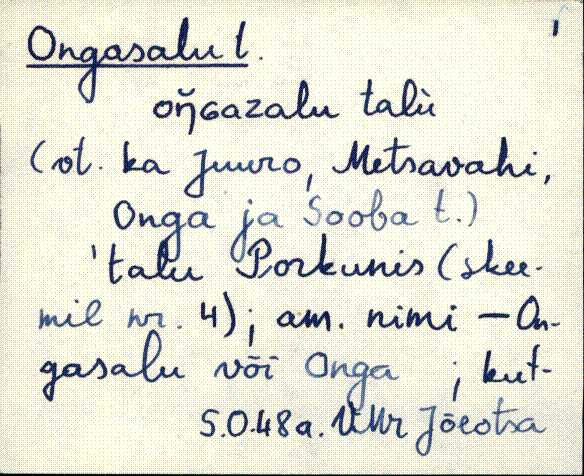 Ongasalu t.
oŋ̆ɢazalu talù
(vt. ka Juuro, Metsavahi,
Onga ja Sooba t.)
'talu Porkunis (skee-
mil nr. 4); am. nimi — On-
gasalu või Onga ; kut-
S.O.48a. VMr Jõeotsa